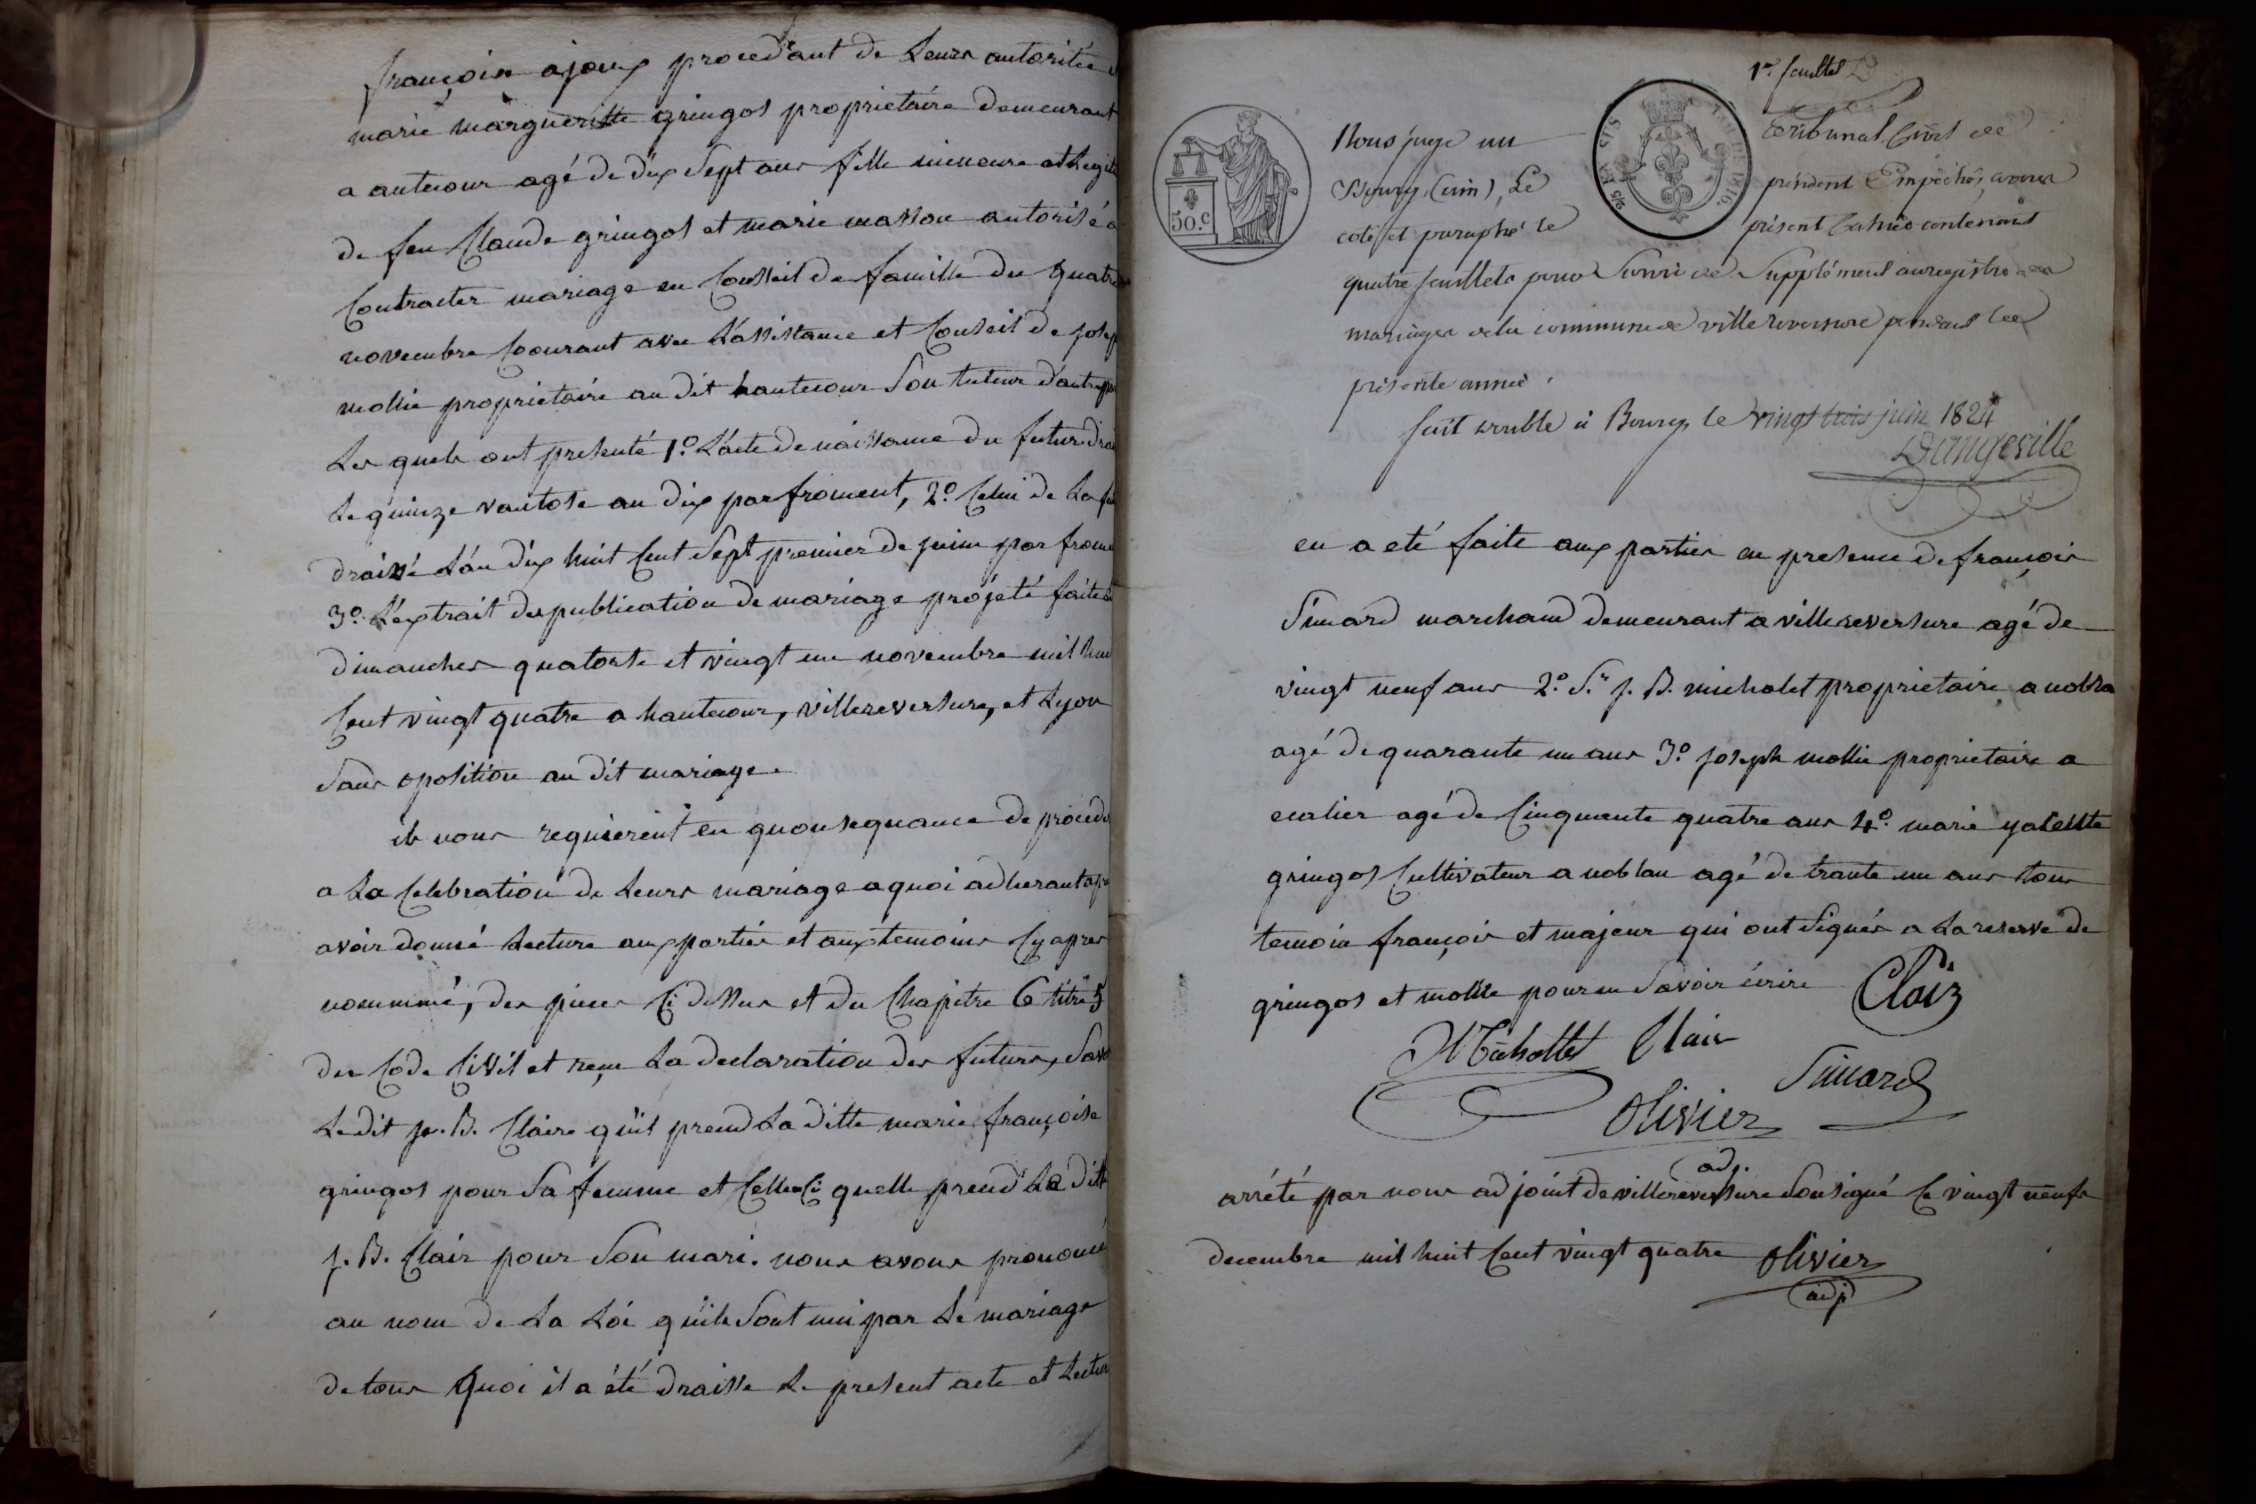 françoise ajoux procedant de leurs autoritée
marie margueritte gringos proprietaire demeurant
a autecour agé de dix sept ans fille mineure et legit
de feu Claude gringos et marie masson autorisé a
Contracter mariage en Conseil de famille du quatre
novembre Courant avec l'assistance et Conseil de josep
mollie proprietaire au dit hautecour son tuteur d'autre pa
les quels ont presenté 1º. L'acte de naissance du futur drai
le quinze vantose an dix par froment, 2º. Celui de la fu
draissé l'an dix huit Cent Sept premier de juin par from
3º. L'extrait des publication de mariage projeté faite
dimanches quatorze et vingt un novembre mil hui
Cent vingt quatre a hautecour, villereversure, et Lyon
sans oposition au dit mariage.
ils nous requierent en quonsequance de proced
a la Celebration de leurs mariage a quoi adherant ap
avoir donné lecture aux parties et aux temoins Cy apres
nommmé, des pieces Ci dessus et du Chapitre 6 titre 5
du Code Civil et reçu la declaration des futurs, Sav
le dit j. B. Claire qu'il prend la ditte marie françoise
gringos pour sa femme et Celle Ci quelle prend le dit
j. B. Clair pour Son mari. nous avons prononcé
au nom de la Loi qu'ils Sont uni par le mariage
de tous quoi il a été draisse le present acte et lectur
1er. feuillet
50.C
Nous juge au Tribunal Civil de
Bourg (ain), le président Empêché, avons
coté et paraphé le présent Cahier contenant
quatre feuillets pour servir de Supplément au registre des
mariages de la commune de villereversure pendant la
présente année.
fait double à Bourg, le vingt trois juin 1824
Dangeville
en a eté faite aux parties en presence de françois
Simard marchand demeurant a villereversure agé de
vingt neuf ans 2º. Sr. j. B. micholet proprietaire a
agé de quarante un ans 3º. joseph mollie proprietaire a
agé de Cinquente quatre ans 4º. marie
gringos Cultivateur a agé de trante un ans tous
temoin françois et majeur qui ont Signés a la reserve de
gringos et mollie pour ne Savoir écrire Clair
Michollet Clair
Simard
Olivier
adj.
arrété par nous adjoint de villereversure Sousigné le vingt neuf
decembre mil huit Cent vingt quatre Olivier
adj